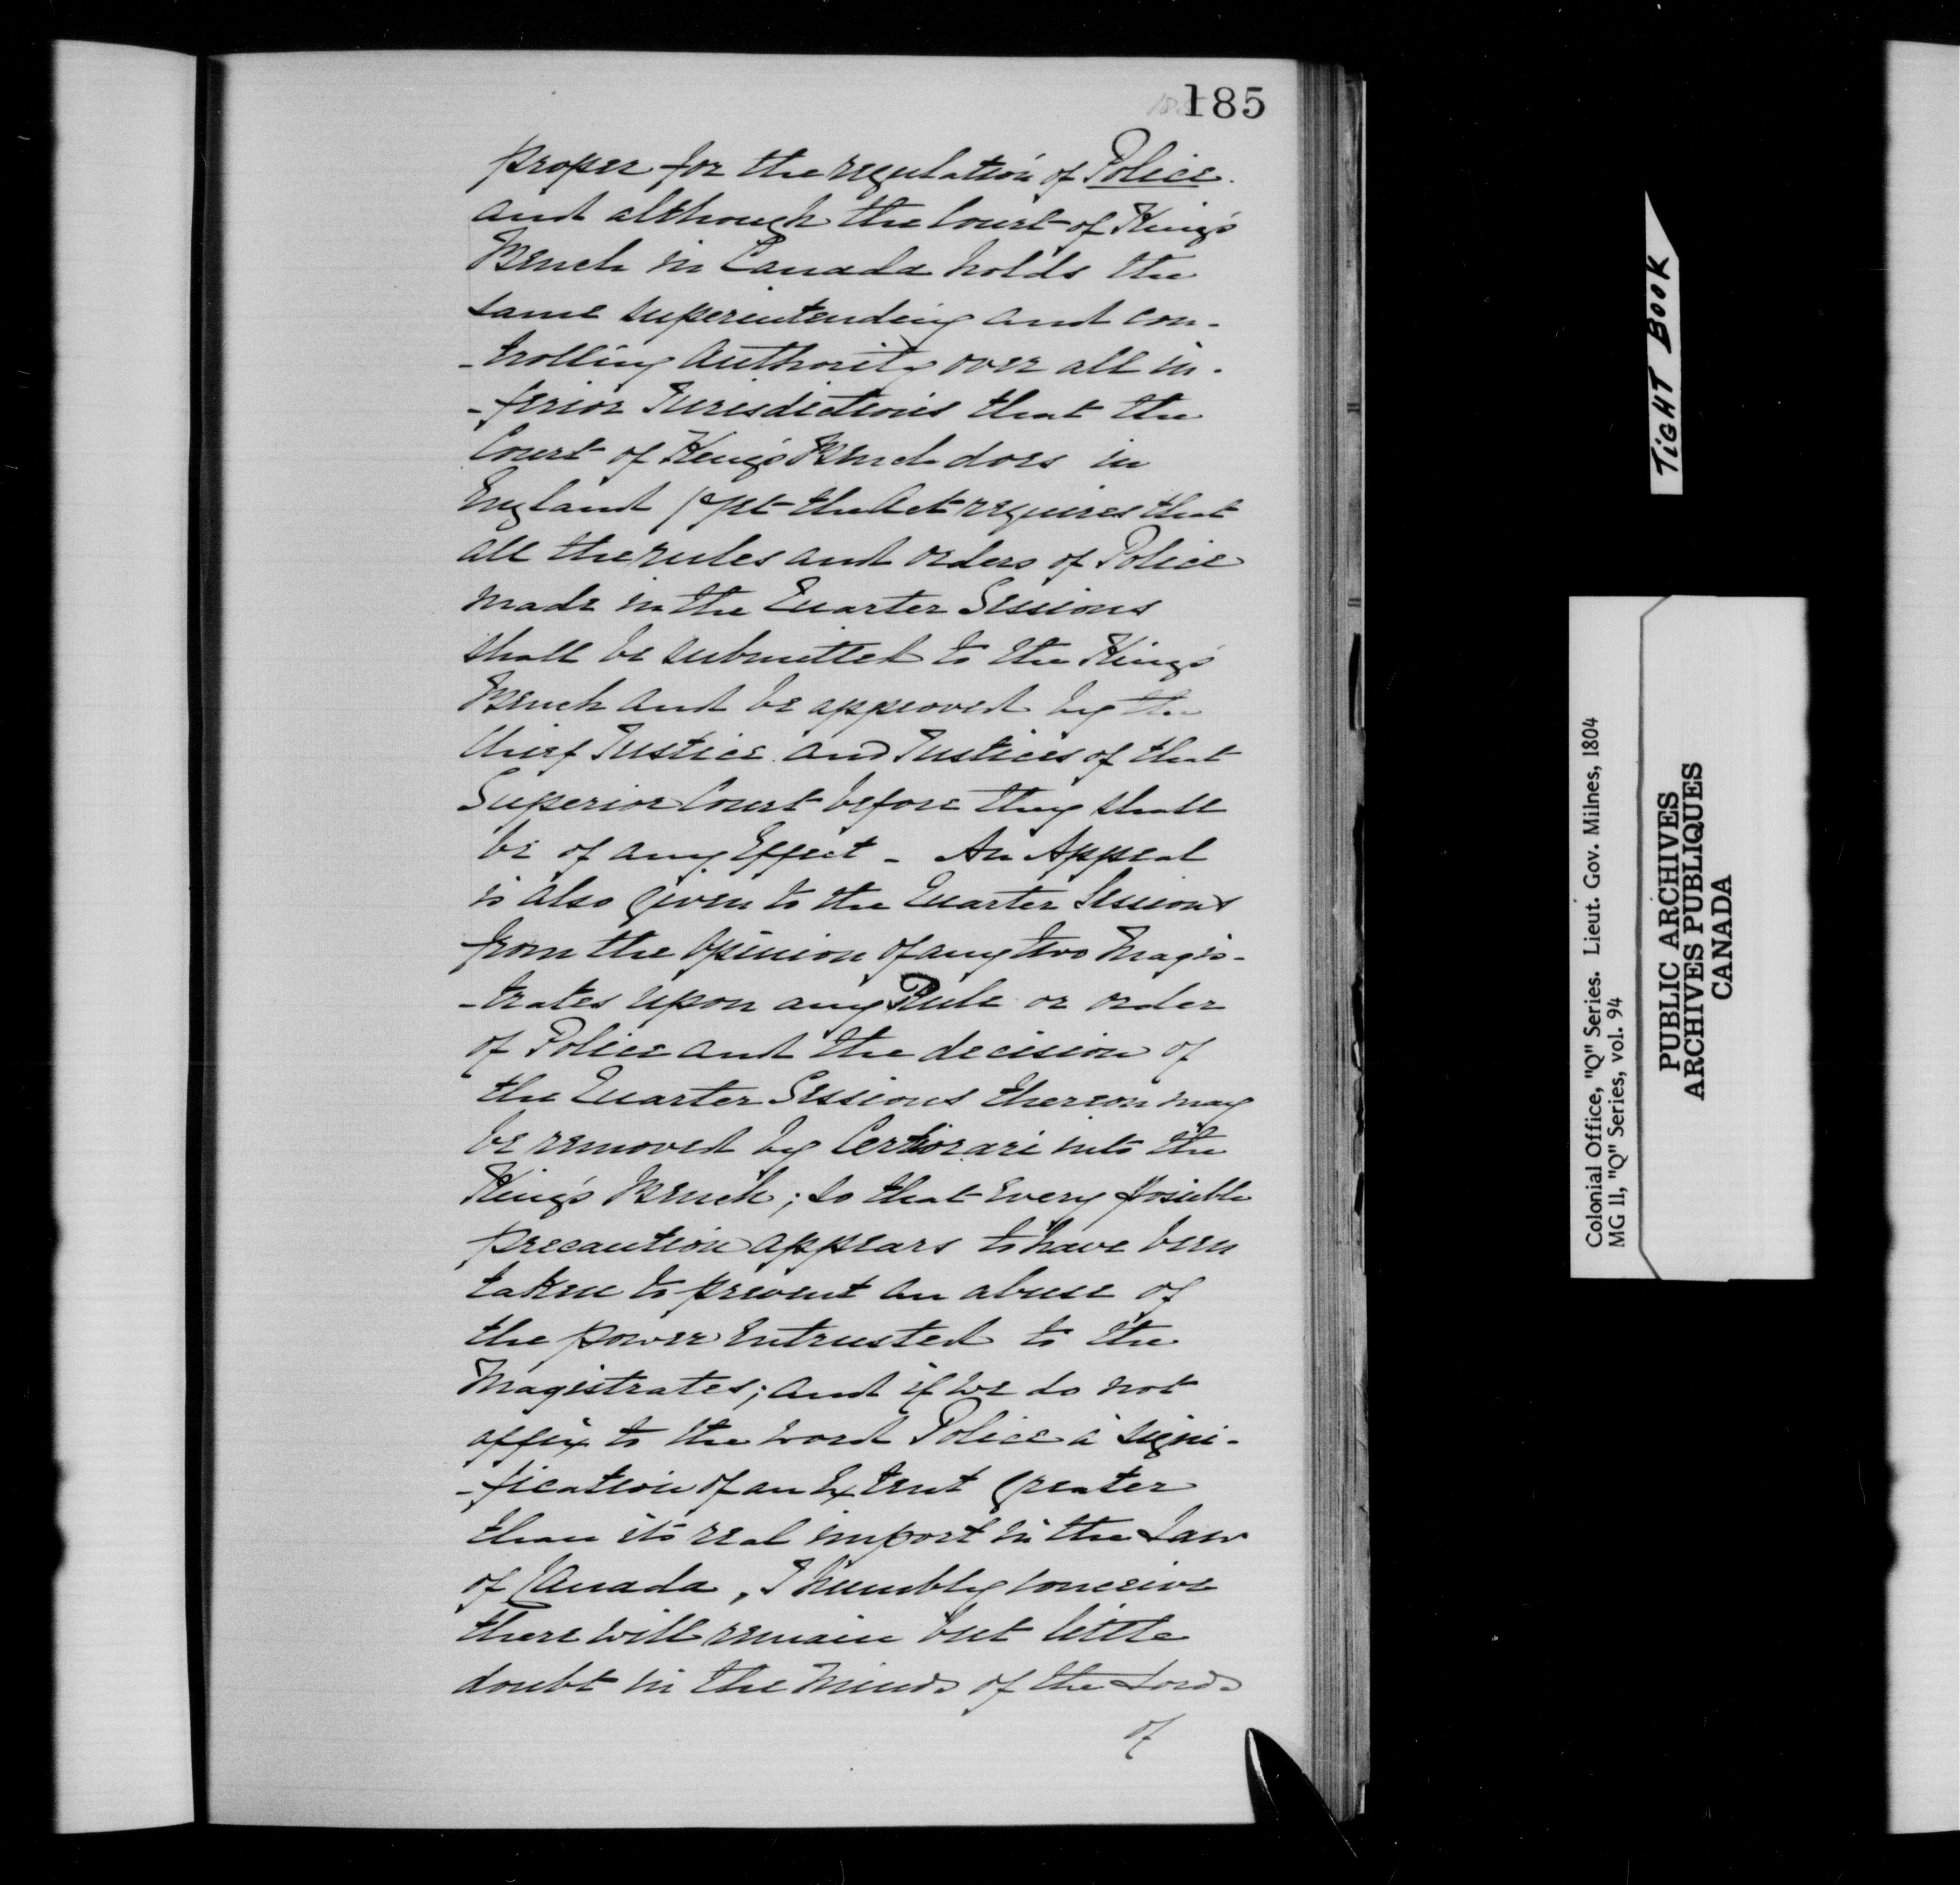 185
proper for the regulation of Police.
and although the Court of King's
Bench in Canada holds the
same superintending and con-
-trolling Authority over all in-
-ferior Jurisdictions that the
Court of King's Bench does in
England / yet the Act requires that
all the rules and orders of Police
made in the Quarter Sessions
shall be submitted to the King's
Bench and be approved by the
Chief Justice and Justices of that
Superior Court before they shall
be of any Effect - An Appeal
is also given to the Quarter Sessions
from the Opinion of any two Magis-
-trates upon any Rule or order
of Police and the decision of
the Quarter Sessions thereon may
be removed by Certiorari into the
King's Bench; so that every possible
precaution appears to have been
taken to prevent an abuse of
the power entrusted to the
Magistrates; and if we do not
affix to the word Police a signi-
-fication of an Extent greater
than its real import in the Law
of Canada, I humbly conceive
there will remain but little
doubt in the Minds of the Lords
of
TIGHT BOOK
Colonial Office, "Q" Series. Lieut. Gov. Milnes, 1804
MG 11, "Q" Series, vol. 94
PUBLIC ARCHIVES
ARCHIVES PUBLIQUES
CANADA